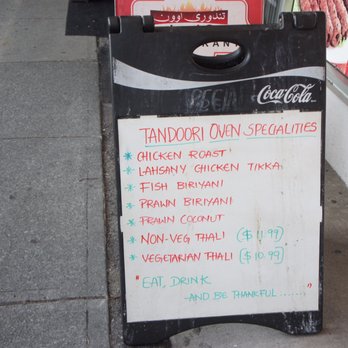 تندوری اوون
RAN
Coca-Cola
TANDOORI OVEN SPECIALITIES
* CHICKEN ROAST
* LAHSANY CHICKEN TIKKA
* FISH BIRIYANI
* PRAWN BIRIYANI
* PRAWN COCONUT
* NON-VEG THALI ($11.99)
* VEGETARIAN THALI ($10.99)
"EAT, DRINK
-AND BE THANKFUL......."